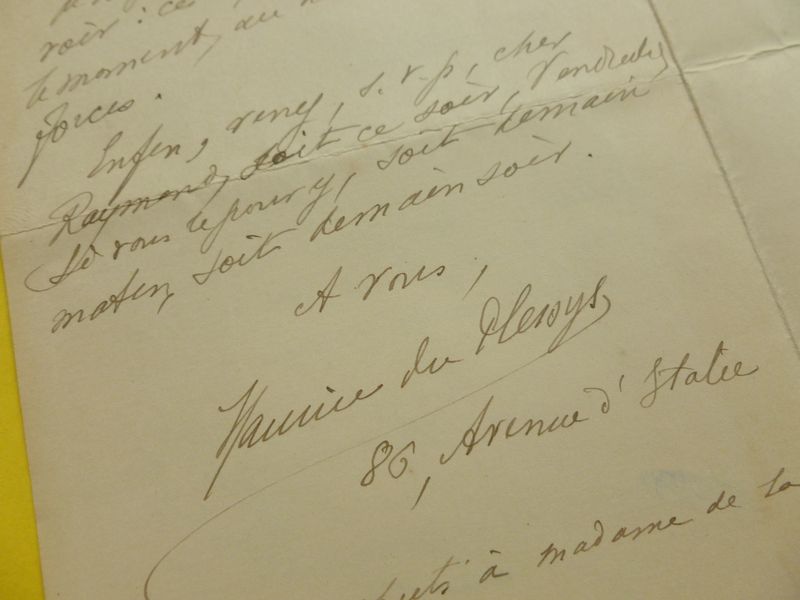 voir : ce
le moment, au
forces.
Enfin, venez, s. v. p., cher
Raymond, soit ce soir, Vendredi,
si vous le pouvez, soit demain
matin, soit demain soir.
A vous,
Maurice du Plessys
86, Avenue d'Italie
à madame de la